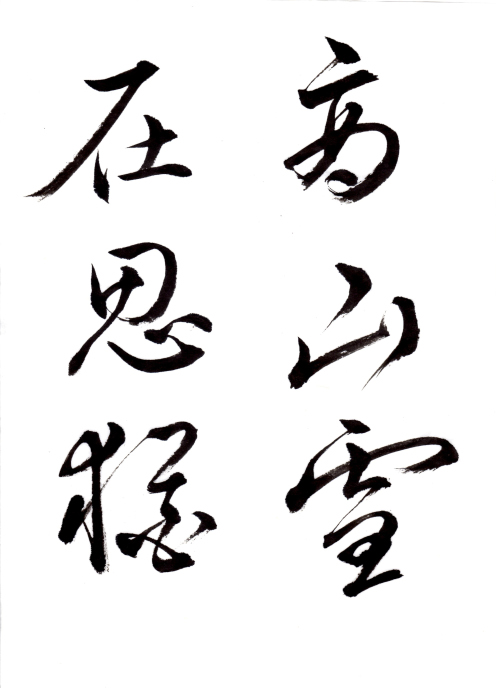 高山雪
在思